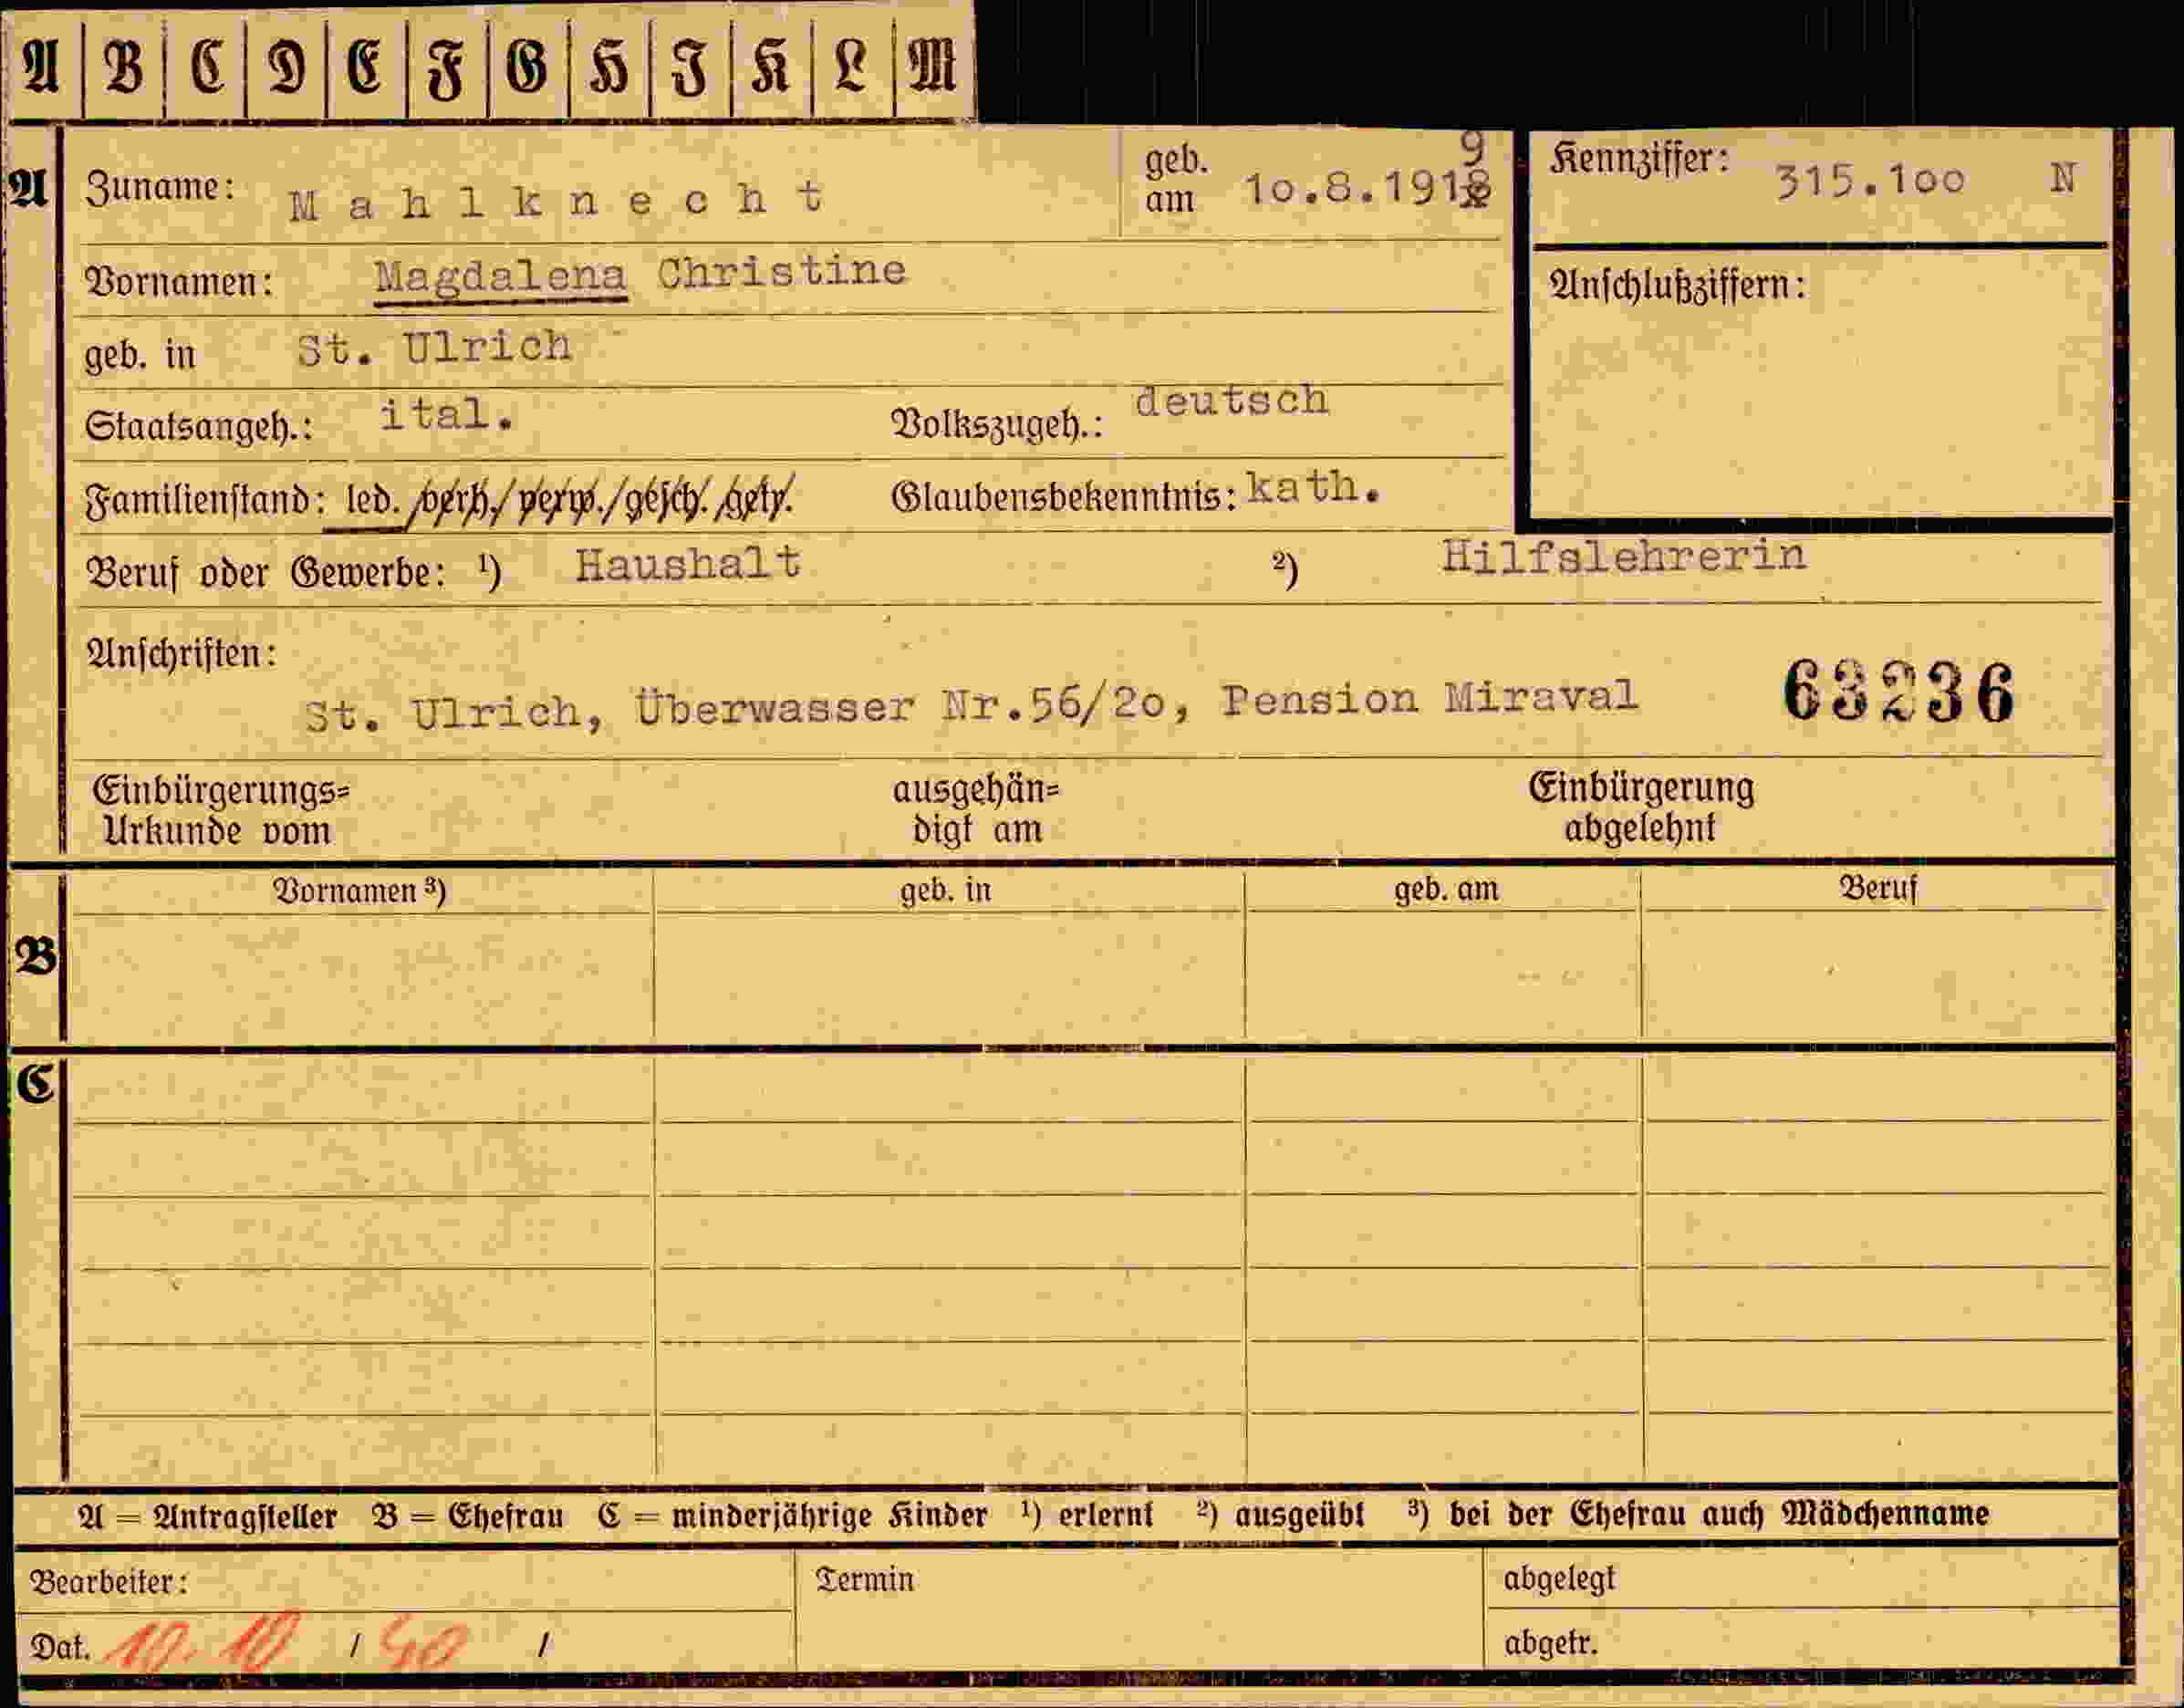 A B C D E F G H I K L M
A Zuname: Mahlknecht geb. am 10.8.1918 9 Kennziffer: 315.100 N
Vornamen: Magdalena Christine Anschlußziffern:
geb. in St. Ulrich
Staatsangeh.: ital. Volkszugeh.: deutsch
Familienstand: led. /verh./ verw./gesch. /getr. Glaubensbekenntnis: kath.
Beruf oder Gewerbe: ¹) Haushalt ²) Hilfslehrerin
Anschriften:
St. Ulrich, Überwasser Nr.56/20, Pension Miraval 63236
Einbürgerungs= ausgehän= Einbürgerung
Urkunde vom digt am abgelehnt
Vornamen ³) geb. in geb. am Beruf
B
C
A = Antragsteller B = Ehefrau C = minderjährige Kinder ¹) erlernt ²) ausgeübt ³) bei der Ehefrau auch Mädchenname
Bearbeiter: Termin abgelegt
Dat. 19. 10 / 40 / abgetr.